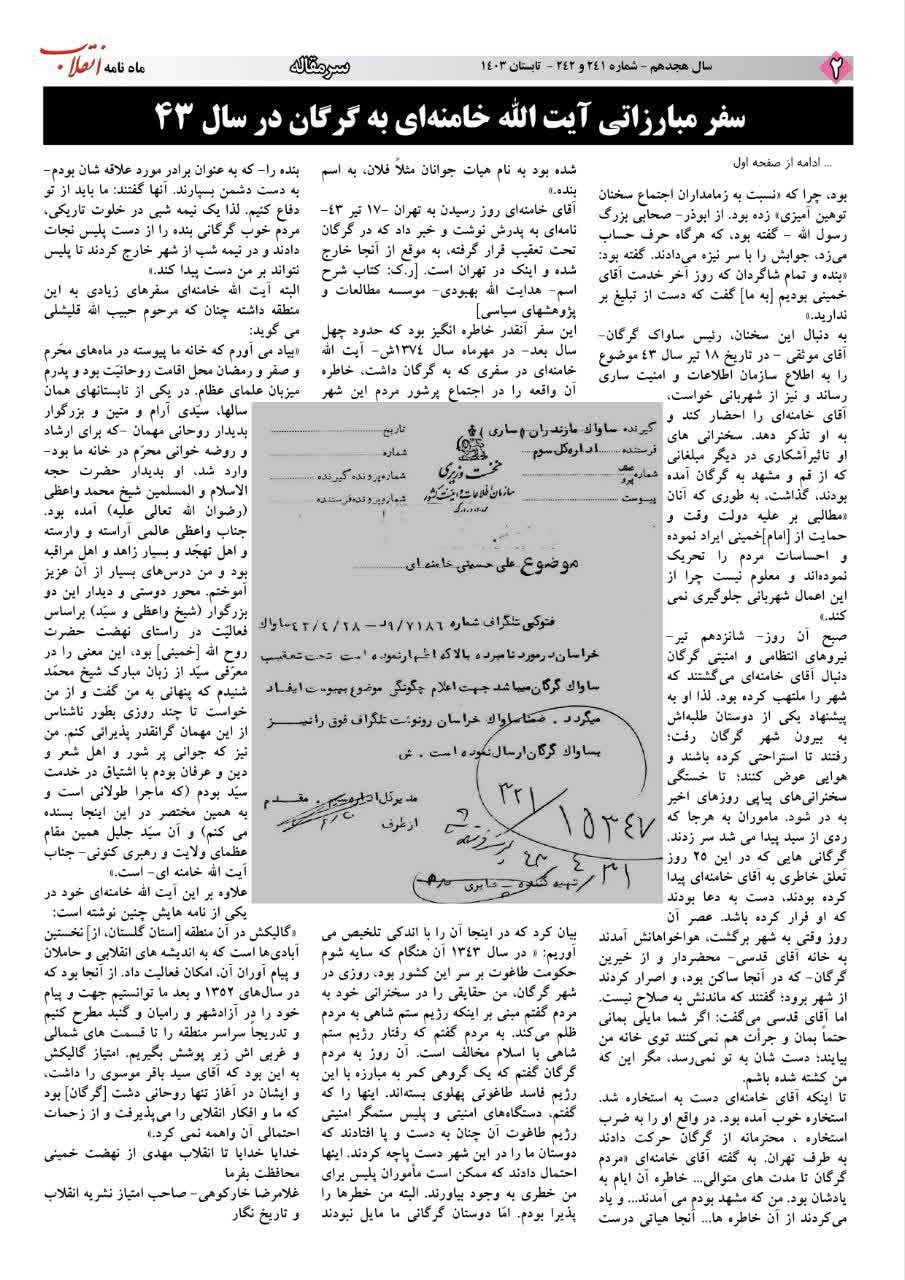 ۲
سال هجدهم - شماره ۲۴۱ و ۲۴۲ - تابستان ۱۴۰۳
سرمقاله
ماه نامه انقلاب
سفر مبارزاتی آیت الله خامنه‌ای به گرگان در سال ۴۳
... ادامه از صفحه اول
بود، چرا که «نسبت به زمامداران اجتماع سخنان
توهین آمیزی» زده بود. از ابوذر- صحابی بزرگ
رسول الله - گفته بود، که هرگاه حرف حساب
می‌زد، جوابش را با سر نیزه می‌دادند. گفته بود:
«بنده و تمام شاگردان که روز آخر خدمت آقای
خمینی بودیم [به ما] گفت که دست از تبلیغ بر
ندارید.»
به دنبال این سخنان، رئیس ساواک گرگان-
آقای موثقی - در تاریخ ۱۸ تیر سال ۴۳ موضوع
را به اطلاع سازمان اطلاعات و امنیت ساری
رساند و نیز از شهربانی خواست،
آقای خامنه‌ای را احضار کند و
به او تذکر دهد. سخنرانی های
او تاثیرآشکاری در دیگر مبلغانی
که از قم و مشهد به گرگان آمده
بودند، گذاشت، به طوری که آنان
«مطالبی بر علیه دولت وقت و
حمایت از [امام]خمینی ایراد نموده
و احساسات مردم را تحریک
نموده‌اند و معلوم نیست چرا از
این اعمال شهربانی جلوگیری نمی
کند.»
صبح آن روز- شانزدهم تیر-
نیروهای انتظامی و امنیتی گرگان
دنبال آقای خامنه‌ای می‌گشتند که
شهر را ملتهب کرده بود. لذا او به
پیشنهاد یکی از دوستان طلبه‌اش
به بیرون شهر گرگان رفت؛
رفتند تا استراحتی کرده باشند و
هوایی عوض کنند؛ تا خستگی
سخنرانی‌های پیاپی روزهای اخیر
به در شود. ماموران به هرجا که
ردی از سید پیدا می شد سر زدند.
گرگانی هایی که در این ۲۵ روز
تعلق خاطری به آقای خامنه‌ای پیدا
کرده بودند، دست به دعا بودند
که او فرار کرده باشد. عصر آن
روز وقتی به شهر برگشت، هواخواهانش آمدند
به خانه آقای قدسی- محضردار و از خیرین
گرگان- که در آنجا ساکن بود، و اصرار کردند
از شهر برود؛ گفتند که ماندنش به صلاح نیست.
اما آقای قدسی می‌گفت: اگر شما مایلی بمانی
حتماً بمان و جرأت هم نمی‌کنند توی خانه من
بیایند؛ دست شان به تو نمی‌رسد، مگر این که
من کشته شده باشم.
تا اینکه آقای خامنه‌ای دست به استخاره شد.
استخاره خوب آمده بود. در واقع او را به ضرب
استخاره ، محترمانه از گرگان حرکت دادند
به طرف تهران. به گفته آقای خامنه‌ای «مردم
گرگان تا مدت های متوالی... خاطره آن ایام به
یادشان بود. من که مشهد بودم می آمدند... و یاد
می‌کردند از آن خاطره ها... آنجا هیاتی درست
شده بود به نام هیات جوانان مثلاً فلان، به اسم
بنده.»
آقای خامنه‌ای روز رسیدن به تهران -۱۷ تیر ۴۳-
نامه‌ای به پدرش نوشت و خبر داد که در گرگان
تحت تعقیب قرار گرفته، به موقع از آنجا خارج
شده و اینک در تهران است. [ر.ک: کتاب شرح
اسم- هدایت الله بهبودی- موسسه مطالعات و
پژوهشهای سیاسی]
این سفر آنقدر خاطره انگیز بود که حدود چهل
سال بعد- در مهرماه سال ۱۳۷۴ش- آیت الله
خامنه‌ای در سفری که به گرگان داشت، خاطره
آن واقعه را در اجتماع پرشور مردم این شهر
گیرنده ساواک مازندران (ساری)
فرستنده اداره کل سوم
شماره
پیوست
نخست وزیری
سازمان اطلاعات و امنیت کشور
س.ا.و.ا.ک
تاریخ
شماره
شماره پرونده گیرنده
شماره پرونده فرستنده
موضوع علی حسینی خامنه ای
فتوکپی تلگراف شماره ۹/۷۱۸۶د - ۴۳/۴/۲۸ ساواک
خراسان در مورد نامبرده بالا که اظهار نموده است تحت تعقیب
ساواک گرگان میباشد جهت اعلام چگونگی موضوع بپیوست ایفاد
میگردد . ضمنا ساواک خراسان رونوشت تلگراف فوق را نیز
بساواک گرگان ارسال نموده است . ش
مدیر کل اداره سوم . مقدم
از طرف
۳۲۱/۱۵۳۴۷
۴۳/۴/۳۱
تهیه کننده - صابری
بیان کرد که در اینجا آن را با اندکی تلخیص می
آوریم: « در سال ۱۳۴۳ آن هنگام که سایه شوم
حکومت طاغوت بر سر این کشور بود، روزی در
شهر گرگان، من حقایقی را در سخنرانی خود به
مردم گفتم مبنی بر اینکه رژیم ستم شاهی به مردم
ظلم می‌کند. به مردم گفتم که رفتار رژیم ستم
شاهی با اسلام مخالف است. آن روز به مردم
گرگان گفتم که یک گروهی کمر به مبارزه با این
رژیم فاسد طاغوتی پهلوی بسته‌اند. اینها را که
گفتم، دستگاه‌های امنیتی و پلیس ستمگر امنیتی
رژیم طاغوت آن چنان به دست و پا افتادند که
دوستان ما را در این شهر دست پاچه کردند. اینها
احتمال دادند که ممکن است مأموران پلیس برای
من خطری به وجود بیاورند. البته من خطرها را
پذیرا بودم. امّا دوستان گرگانی ما مایل نبودند
بنده را- که به عنوان برادر مورد علاقه شان بودم-
به دست دشمن بسپارند. آنها گفتند: ما باید از تو
دفاع کنیم. لذا یک نیمه شبی در خلوت تاریکی،
مردم خوب گرگانی بنده را از دست پلیس نجات
دادند و در نیمه شب از شهر خارج کردند تا پلیس
نتواند بر من دست پیدا کند.»
البته آیت الله خامنه‌ای سفرهای زیادی به این
منطقه داشته چنان که مرحوم حبیب الله قلیشلی
می گوید:
«بیاد می آورم که خانه ما پیوسته در ماه‌های محّرم
و صفر و رمضان محل اقامت روحانیّت بود و پدرم
میزبان علمای عظام. در یکی از تابستانهای همان
سالها، سیّدی آرام و متین و بزرگوار
بدیدار روحانی مهمان -که برای ارشاد
و روضه خوانی محرّم در خانه ما بود-
وارد شد، او بدیدار حضرت حجه
الاسلام و المسلمین شیخ محمد واعظی
(رضوان الله تعالی علیه) آمده بود.
جناب واعظی عالمی آراسته و وارسته
و اهل تهجّد و بسیار زاهد و اهل مراقبه
بود و من درس‌های بسیار از آن عزیز
آموختم. محور دوستی و دیدار این دو
بزرگوار (شیخ واعظی و سیّد) براساس
فعالیّت در راستای نهضت حضرت
روح الله [خمینی] بود، این معنی را در
معرّفی سیّد از زبان مبارک شیخ محمّد
شنیدم که پنهانی به من گفت و از من
خواست تا چند روزی بطور ناشناس
از این مهمان گرانقدر پذیرائی کنم. من
نیز که جوانی پر شور و اهل شعر و
دین و عرفان بودم با اشتیاق در خدمت
سیّد بودم (که ماجرا طولانی است و
به همین مختصر در این اینجا بسنده
می کنم) و آن سیّد جلیل همین مقام
عظمای ولایت و رهبری کنونی- جناب
آیت الله خامنه ای- است.»
علاوه بر این آیت الله خامنه‌ای خود در
یکی از نامه هایش چنین نوشته است:
«گالیکش در آن منطقه [استان گلستان، از] نخستین
آبادی‌ها است که به اندیشه های انقلابی و حاملان
و پیام آوران آن، امکان فعالیت داد. از آنجا بود که
در سال‌های ۱۳۵۲ و بعد ما توانستیم جهت و پیام
خود را در آزادشهر و رامیان و گنبد مطرح کنیم
و تدریجا سراسر منطقه را تا قسمت های شمالی
و غربی اش زیر پوشش بگیریم. امتیاز گالیکش
به این بود که آقای سید باقر موسوی را داشت،
و ایشان در آغاز تنها روحانی دشت [گرگان] بود
که ما و افکار انقلابی را می‌پذیرفت و از زحمات
احتمالی آن واهمه نمی کرد.»
خدایا خدایا تا انقلاب مهدی از نهضت خمینی
محافظت بفرما
غلامرضا خارکوهی- صاحب امتیاز نشریه انقلاب
و تاریخ نگار